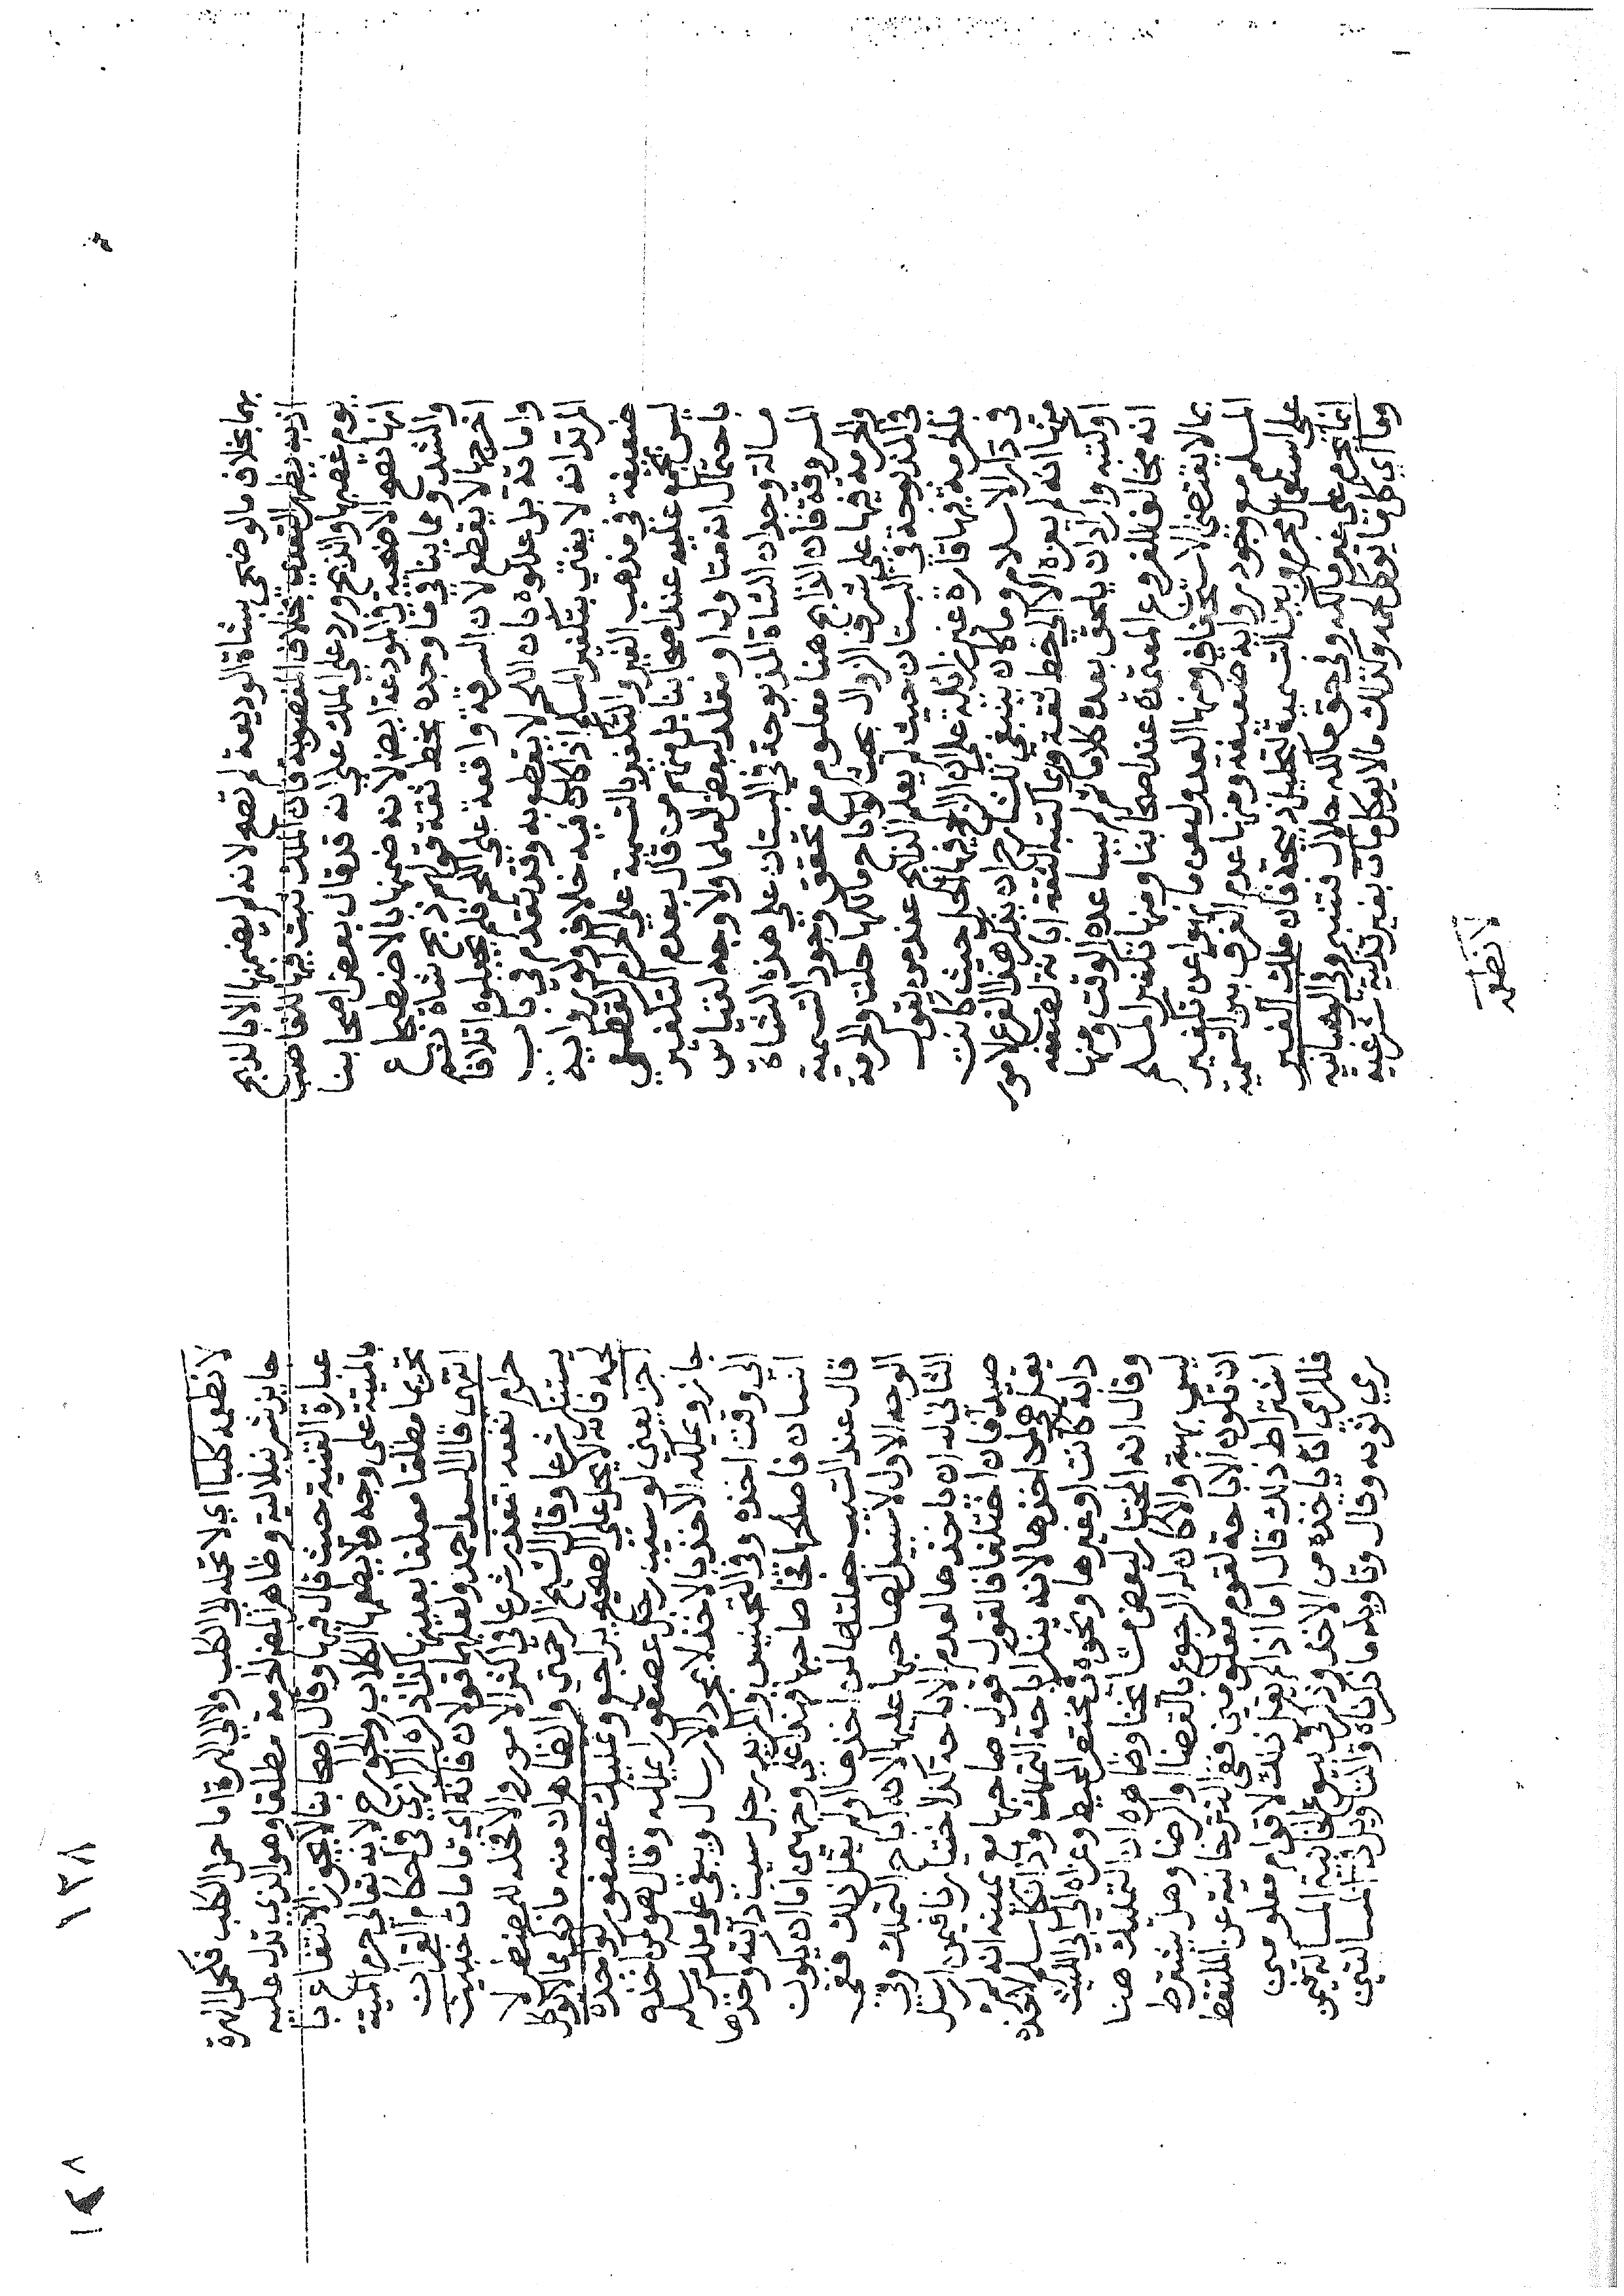 بها بخلاف ما لو ضحى بشاة الوديعة لم تصح لانه لم يضمنها الا بالذبح
اذ به يظهر التعدي بخلاف المغصوبة فان الملك ثبت فيها للغاصب
يوم غصبها والذبح ورد على الملك على انه قد قال بعض اصحابنا
انها تصح الاضحية في المودعة ايضا لانه ضمنها بالاضطجاع
والشد وعاينا فيما وجده بخط ثقة قولهم ذبح شاة
اخرجها لا يقطع لان السرقة واقعة على اللحم فلم يجعلوه اتلافا
واماتة بل عللوه بان اللحم لا يقطع به وقد تقدم في باب
المرتد انه لا يفتي بتكفير المسلم اذا كان فيه خلاف ولو رواية
ضعيفة في مذهب الغير والتكفير بالتسمية على الحرام القطعي
ليس بمجمع عليه عند اصحابنا بل منهم من قال بعدم التكفير
باحتمال انه متاول او مقلد لبعض العلما ولا وجه لقياس
مسالة وجدان الشاة المذبوحة في البستان على هذه الشاة
المسروقة فان الذابح هنا معلوم مع تحقق وجود التسمية
والحرمة فيها على شرف الزوال بحيث لو اباح مالكها حلت والحرمة
في المذبوحة في البستان حيث لم يعلم الذابح عند من يقول
بالحرمة فيها قارة غير زائلة على ان الارجح فيها الحل حيث كانت
في دار الاسلام وما كان ينبغي للشارح ان يذكر هذا الفرع لامور
منها انه لم يعزه الا الى خط ثقة وربما كتبه الثقة ابانة لضعفه
او كتبه واراد ان يلحق بعده كلاما ثم لم يساعده الوقت ومنها
انه مخالف للفروع المعتمدة عند اصحابنا ومنها تكفير المسلم
بما لا يقتضي الاستخفاف ومنها العدول عن ما هو اعن تكفير
المسلم مع وجود رواية ضعيفة ومنها عدم الفرق بين التسمية
على استعمال المحرم وبين التسمية لتحليل ذبيحة فان ملك الغير
انما يحرم على غير مالكه وفي حق مالكه حلال فتنبه وفي الوهبانية
وما اي كل ما يوكل لحمه وكذلك ما لا يوكل مات بغير تذكية شرعية
لا نطعمه
لا نطعمه كلبا اي لا نحمله الى الكلب ولا الى الهرة اما حمل الكلب فكحمل الهرة
جايز شرنبلالية وظاهر النص الحرمة مطلقا وهو الذي تدل عليه
عبارة القنية حيث قال فيها وقال اصحابنا لا يجوز الانتفاع با
بالميتة على وجه ولا يطعمها الكلاب والجوارح لانه تعالى حرم الميتة
تحريما مطلقا معلقا بعينها كذا ذكره الرازي في احكام القران
انتهى قال السيد احمد ولعلهما قولان فانه اي ما مات خبيث
حرام نفعه تعذر شرعا في اكثر الامور والا فحله للمضطر لا
يستنكر شرعا وقال الشيخ الرحمتي والظاهر ان منه ما ذكي مما لا يوكل
لحمه فانه لا يحل على الصحيح يراجع وعليك عصفور لواحده
اجز يعني لو سيب رجل عصفورا يملكه وقال هو لمن اخذه
جاز ويملكه الاخذ بالاخذ لا بمجرد الارسال ويبقى على ملك مرسله
الى وقت اخذه وفي التجنيس والمزيد رجل سيب دابته واخذها
انسان فاصلحها فجا صاحبها فهذا على وجهين اما ان يكون
قال عند التسييب جعلتها لمن اخذها او لم يقل ذلك ففي
الوجه الاول لا سبيل لصاحبها عليها لانه اباح التملك وفي
الثاني له ان ياخذها لعدم الاباحة كذا اختيار فيمن ارسل
صيدا فان اختلفا فالقول قول صاحبها مع يمينه انه لم
يقل هي لمن اخذها لانه ينكر اباحة التملك وذا كما يسلم لاخذ
دابة كانت او غيرها ونحوه في مختصر المحيط وعزاه الى ابي الليث
وقال انه المختار لبعض مشايخنا وظاهره ان التمليك هنا
ليس بهبة والا كان له الرجوع بالقضا والرضا وهل يشترط
ان تكون الاباحة لقوم معلومين ففي التترخانية عن الملتقط
اشتراط ذلك قال اما اذا لم يقل ذلك لاقوام معلومين
فللرامي ان ياخذه من الاخذ وذكر في بيوع الخانية المسالة فيمن
رمي ثوبه وقال وتاويله ما ذكرناه والتاويل في المسالتين
١٢٨
١٤٨